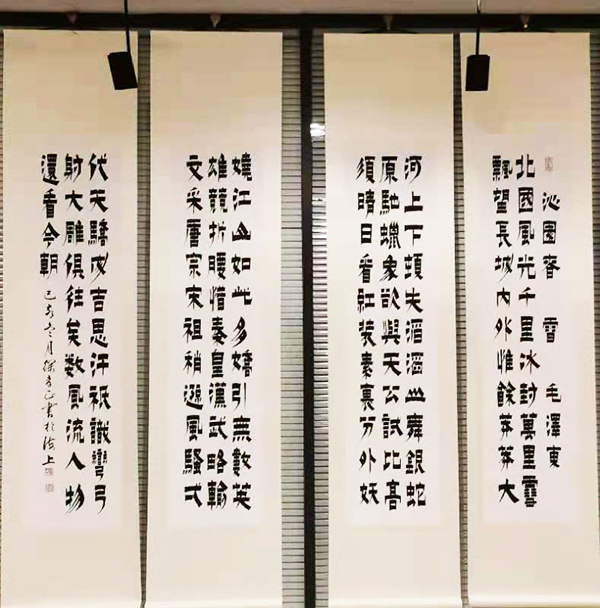 沁園春 雪 毛澤東
北國風光千里冰封萬里雪
飄望長城内外惟餘莽莽大
河上下頓失滔滔山舞銀蛇
原馳蠟象欲與天公試比高
須晴日看紅裝素裹分外妖
嬈江山如此多嬌引無數英
雄競折腰惜秦皇漢武略輸
文采唐宗宋祖稍遜風騷弌
代天驕成吉思汗祇識彎弓
射大雕俱往矣数風流人物
還看今朝 己亥冬月 書於海上